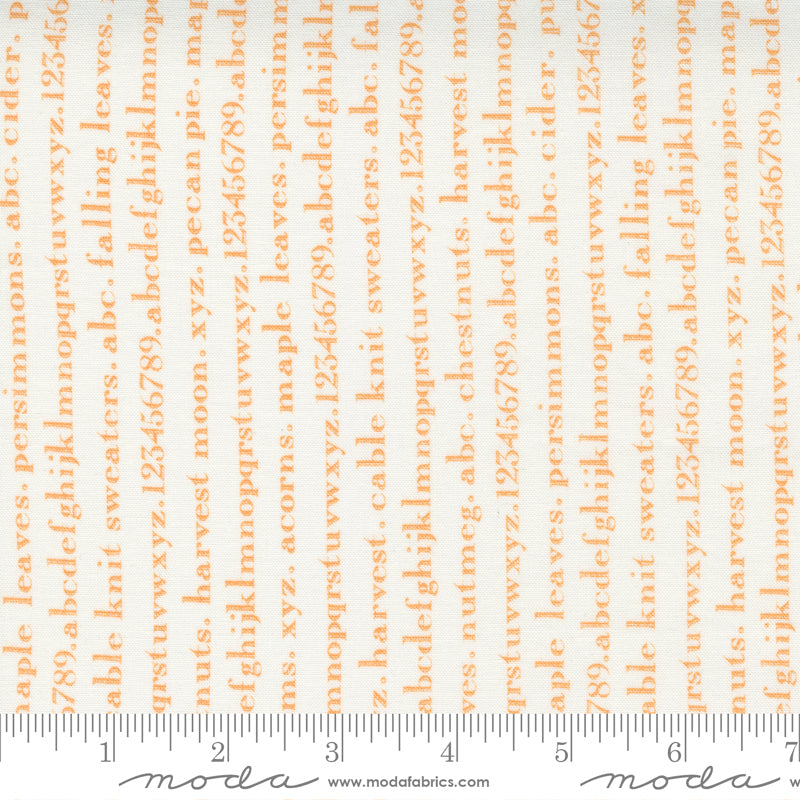 maple leaves. persimmons. abc. cider. p
789. abcdefghijklmnopqrstuvwxyz. 123456
able knit sweaters. abc. falling leaves.
qrstuvwxyz. 123456789. abcdefghijklmnop
nuts. harvest moon. xyz. pecan pie. map
efghijklmnopqrstuvwxyz. 123456789. abcde
ms. xyz. acorns. maple leaves. persimm
mnopqrstuvwxyz. 123456789. abcdefghijklm
z. harvest. cable knit sweaters. abc. fal
abcdefghijklmnopqrstuvwxyz. 123456789. a
ves. nutmeg. abc. chestnuts. harvest moo
qrstuvwxyz. 123456789. abcdefghijklmnop
aple leaves. persimmons. abc. cider. pu
789. abcdefghijklmnopqrstuvwxyz. 1234567
able knit sweaters. abc. falling leaves. x
qrstuvwxyz. 123456789. abcdefghijklmnopq
nuts. harvest moon. xyz. pecan pie. map
efghijklmnopqrstuvwxyz. 123456789. abcde
1 2 3 4 5 6 7
moda www.modafabrics.com moda w